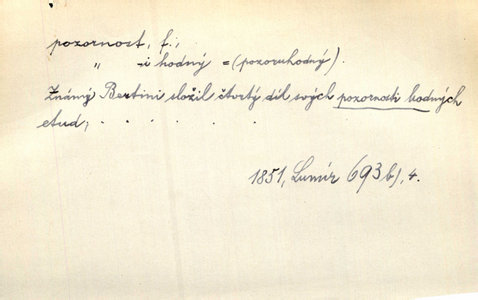 pozornost, f.;
" -i hodný = (pozoruhodný).
Známý Bertini složil čtvrtý díl svých pozornosti hodných
etud; . . . . . . .
1851, Lumír 693b), 4.